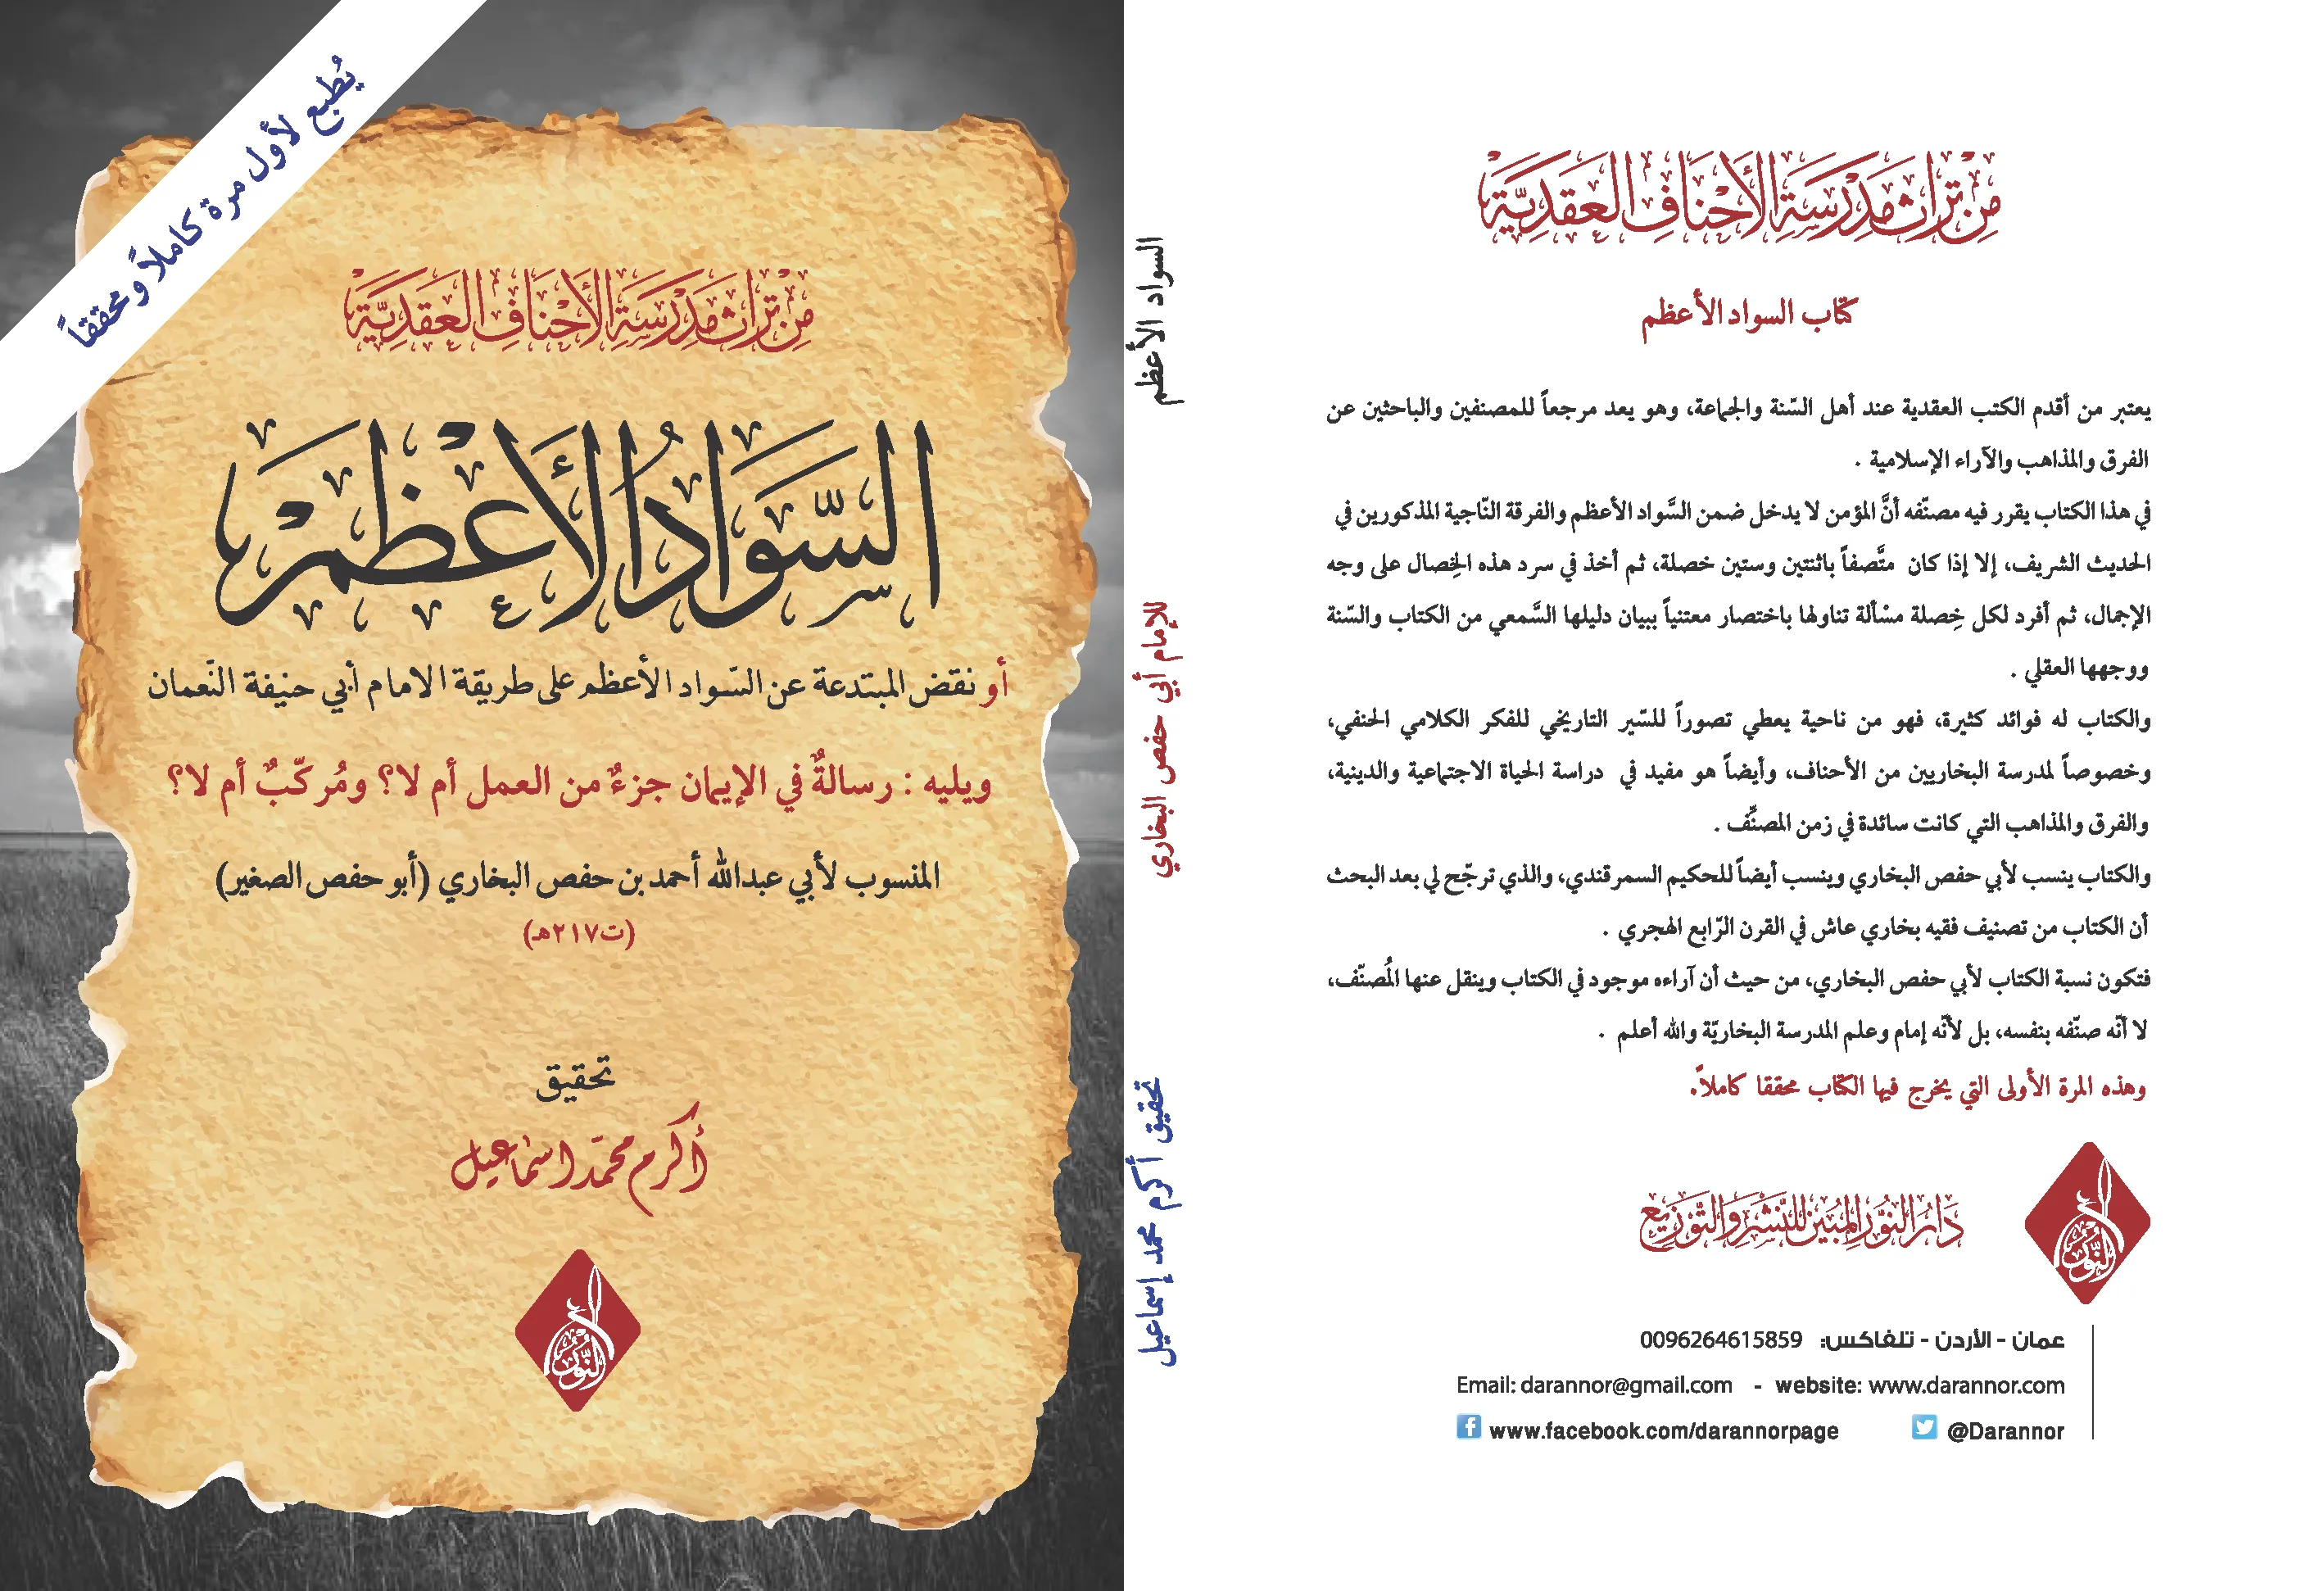 يُطبع لأول مرة كاملاً ومحققاً
من تراث مَدْرسَةِ الأَحْنَافِ العَقَدِيَّة
السَّوَادُ الأَعْظَم
أو نقض المبتدعة عن السّواد الأعظم على طريقة الامام أبي حنيفة النّعمان
ويليه : رسالةٌ في الإيمان جزءٌ من العمل أم لا؟ ومُركّبٌ أم لا؟
المنسوب لأبي عبدالله أحمد بن حفص البخاري (أبو حفص الصغير)
(ت٢١٧هـ)
تحقيق
أكرم محمّد اسماعيل
النُّور
السواد الأعظم
للإمام أبي حفص البخاري
تحقيق أكرم محمد إسماعيل
من تراث مَدْرسَةِ الأَحْنَافِ العَقَدِيَّة
كتاب السواد الأعظم
يعتبر من أقدم الكتب العقدية عند أهل السّنة والجماعة، وهو يعد مرجعاً للمصنفين والباحثين عن
الفرق والمذاهب والآراء الإسلامية .
في هذا الكتاب يقرر فيه مصنّفه أنَّ المؤمن لا يدخل ضمن السَّواد الأعظم والفرقة النّاجية المذكورين في
الحديث الشريف، إلا إذا كان متَّصفاً باثنتين وستين خصلة، ثم أخذ في سرد هذه الخِصال على وجه
الإجمال، ثم أفرد لكل خِصلة مسْألة تناولها باختصار معتنياً ببيان دليلها السَّمعي من الكتاب والسّنة
ووجهها العقلي .
والكتاب له فوائد كثيرة، فهو من ناحية يعطي تصوراً للسّير التاريخي للفكر الكلامي الحنفي،
وخصوصاً لمدرسة البخاريين من الأحناف، وأيضاً هو مفيد في دراسة الحياة الاجتماعية والدينية،
والفرق والمذاهب التي كانت سائدة في زمن المصنِّف .
والكتاب ينسب لأبي حفص البخاري وينسب أيضاً للحكيم السمرقندي، والذي ترجّح لي بعد البحث
أن الكتاب من تصنيف فقيه بخاري عاش في القرن الرّابع الهجري .
فتكون نسبة الكتاب لأبي حفص البخاري، من حيث أن آراءه موجود في الكتاب وينقل عنها المُصنّف،
لا أنّه صنّفه بنفسه، بل لأنّه إمام وعلم المدرسة البخاريّة والله أعلم .
وهذه المرة الأولى التي يخرج فيها الكتاب محققا كاملاً.
دَارُ النُّورِ المُبِين لِلنَّشْرِ وَالتَّوزِيع
النُّور
عمان - الأردن - تلفاكس: 0096264615859
Email: darannor@gmail.com - website: www.darannor.com
www.facebook.com/darannorpage @Darannor